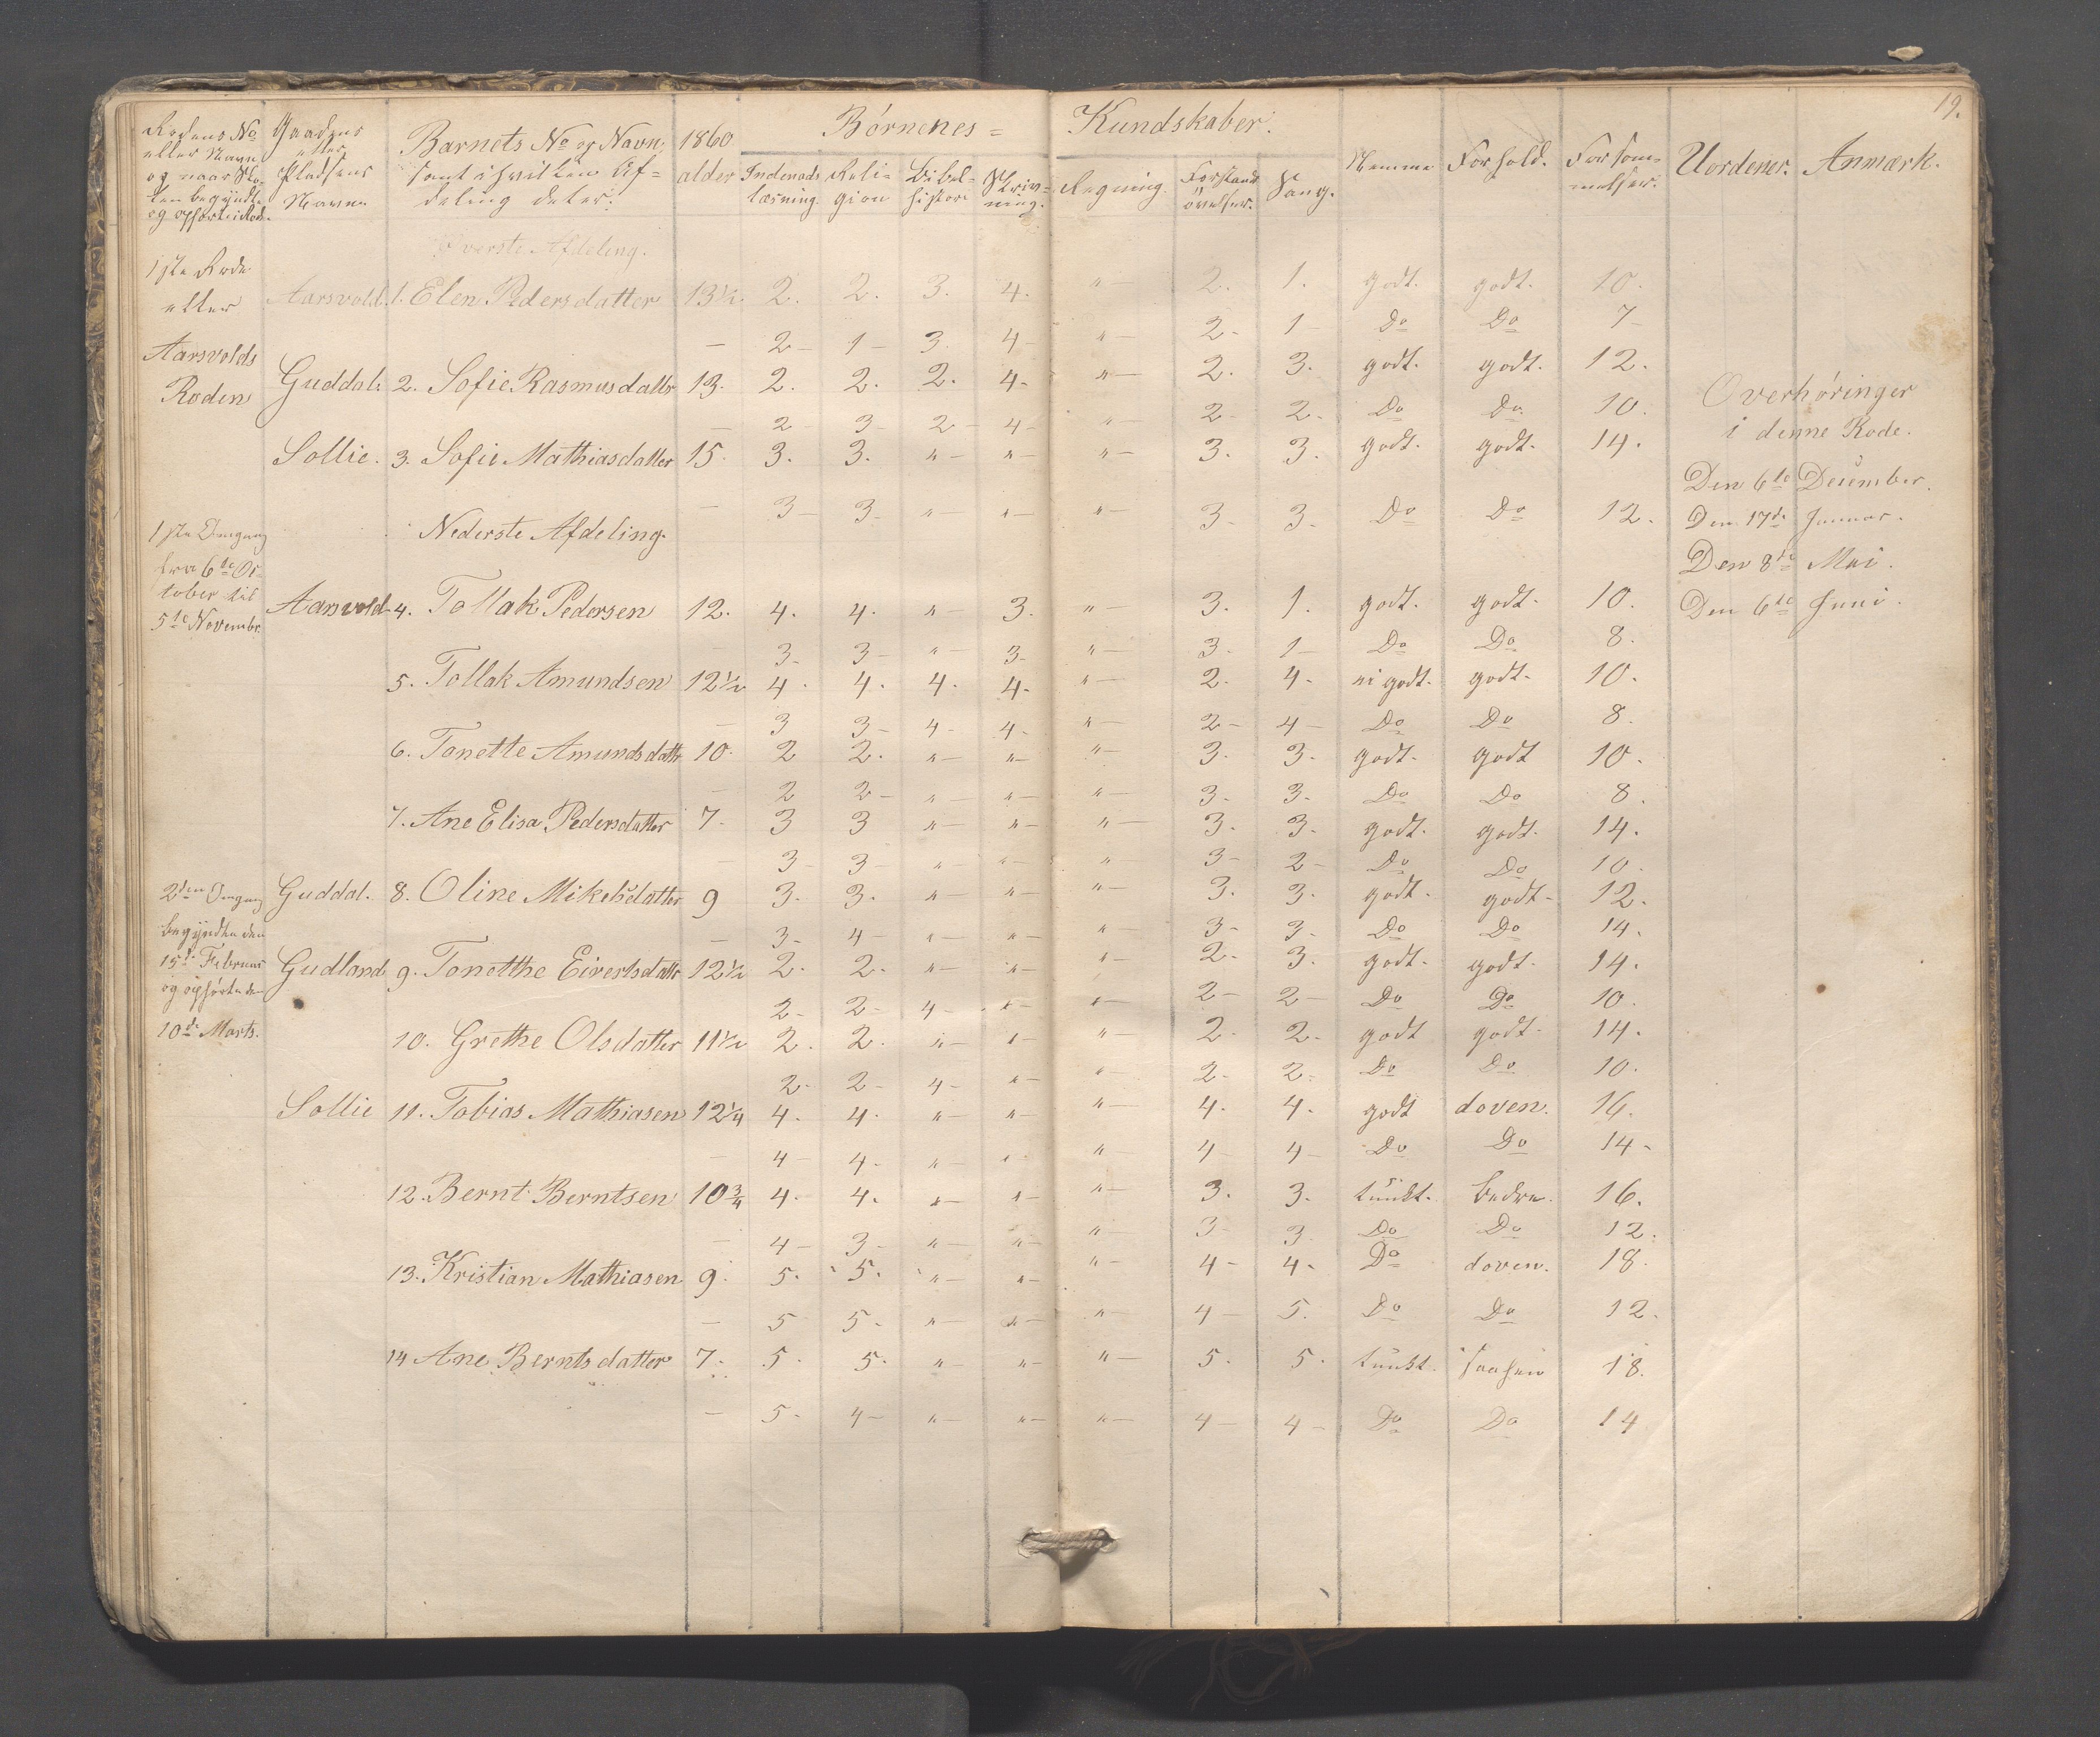 19.
Rodens No Gaardens Barnets No og Navn, 1860 Børnenes = Kundskaber.
eller Navn eller samt i hvilken Af= alder Indenads Reli= Bibel= Skriv= Regning. Forstands Sang. Nemme Forhold. Forsøm= Uordener. Anmærk.
og naar Sko= Pladsens deling det er. læsning. gion historie ning. øvelser. melser.
len begyndte Navn
og opførte i Rode.
Øverste Afdeling.
1ste Rode
eller Aarsvold. 1. Elen Pedersdatter 13½. 2. 2. 3. 4. " — 2. 1. godt. godt. 10.
— 2 — 1 — 3. 4 — " — 2 — 1 — Do Do 7 —
Aarsvolds
Roden Guddal. 2. Sofie Rasmusdatter 13. 2. 2. 2. 4. " — 2. 3. godt. godt. 12.
— 2 — 3 — 2 — 4 — " — 2 — 2 — Do Do 10.
Overhøringer
i denne Rode.
Sollie. 3. Sofie Mathiasdatter 15. 3. 3. " — " — " — 3. 3. godt. godt. 14.
— 3 — 3 — " — " — " — 3 — 3 — Do Do 12.
Den 6te December.
Den 17de Januar.
Den 8de Mai.
Den 6te Juni.
Nederste Afdeling.
1ste Omgang
fra 6te Oc=
tober til
5te Novembr.
Aarsvold 4. Tollak Pedersen 12. 4. 4. " — 3. " — 3. 1. godt. godt. 10.
— 3 — 3 — " — 3 — " — 3 — 1 — Do Do 8.
5. Tollak Amundsen 12½ 4. 4. 4. 4. " — 2. 4. ei godt. godt. 10.
— 3 3 — 4 — 4 — " — 2 — 4 — Do Do 8.
6. Tonette Amundsdattr 10. 2 2. " — " — " — 3. 3. godt. godt 10.
— 2 2 — " — " — " — 3. 3. Do Do 8.
7. Ane Elisa Pedersdatter 7. 3 3 " — " — " — 3. 3. godt. godt. 14.
— 3 — 3 — " — " — " — 3 — 2 — Do Do 10.
Guddal. 8. Oline Mikelsdatter 9 3. 3. " — " — " — 3. 3. godt. godt. 12.
— 3 — 4 — " — " — " — 3 — 3 — Do Do 14.
2den Omgang
begyndte den
15de Februar
og opførte den
10de Marts.
Gudland 9. Tonethe Eivertsdattr 12½ 2. 2. " — " — " — 2. 3. godt. godt. 14.
2 — 2 — 4 — " — " — 2 — 2 — Do Do 10.
10. Grethe Olsdatter 11½ 2. 2. " — " — " — 2. 2. godt godt. 14.
2 — 2 — 4 — " — " — 2 — 2 — Do Do 10.
Sollie 11. Tobias Mathiasen 12¼ 4. 4. " — " — " — 4. 4. godt doven. 16.
— 4 — 4 — " — " — " — 4 4 — Do Do 14 —
12. Bernt Berntsen 10¾ 4. 4. " — " — " — 3. 3. tungt. bedre. 16.
— 4 — 3 — " — " — " — 3 — 3 Do Do 12.
13. Kristian Mathiasen 9. 5. 5. " — " — " — 4 — 4 — Do doven. 18.
— 5 5 — " — " — " — 4 — 5. Do Do 12.
14 Ane Berntsdatter 7. 5. 5. " — " — " — 5. 5. tungt. 18.
— 5 — 4 — " — " — " — 4 — 4 — Do Do 14